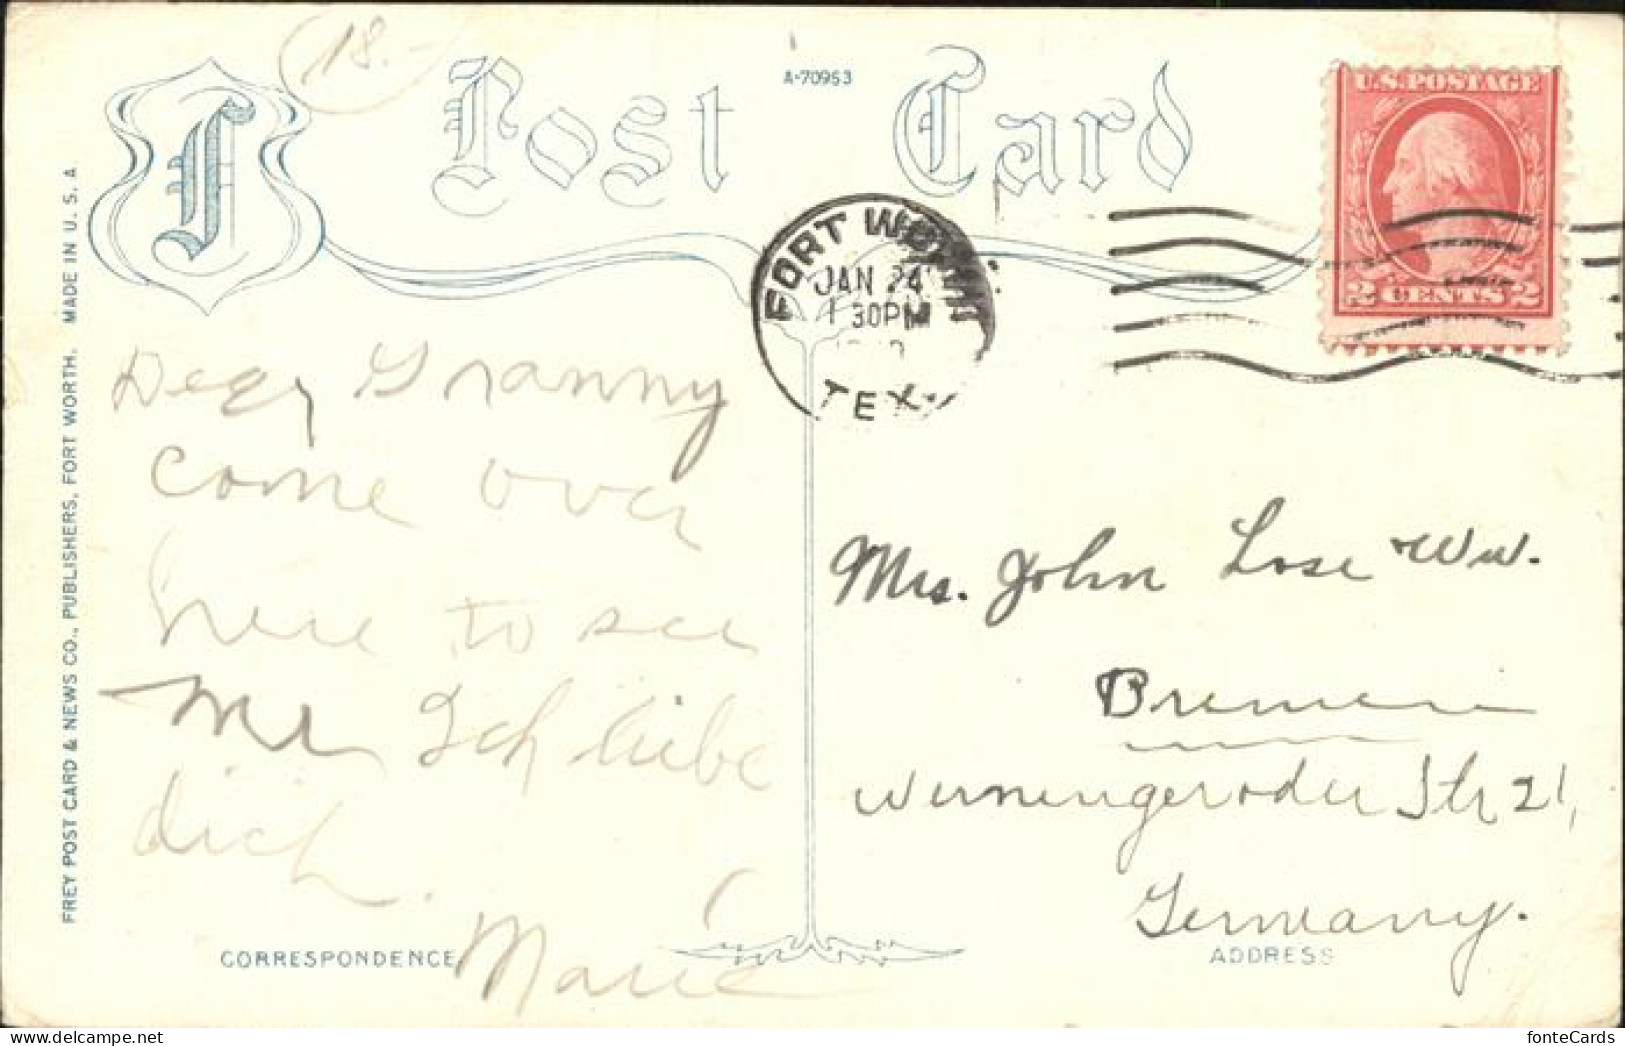 18.-
Post Card
A-70953
F
U.S.POSTAGE
2 CENTS 2
FORT WORTH
JAN 24
1 30PM
TEX
MADE IN U. S. A.
FREY POST CARD & NEWS CO., PUBLISHERS, FORT WORTH.
Dear Granny
come over
here to see
me Ich liebe
dich.
Marie
CORRESPONDENCE
Mrs. John Lose Ww.
Bremen
Werningeroder Str 21,
Germany.
ADDRESS
fonteCards